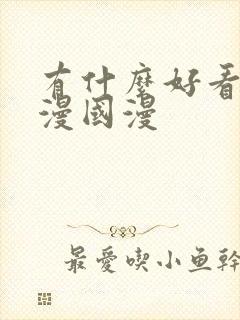 有什麼好看
漫國漫
最愛喫小鱼幹